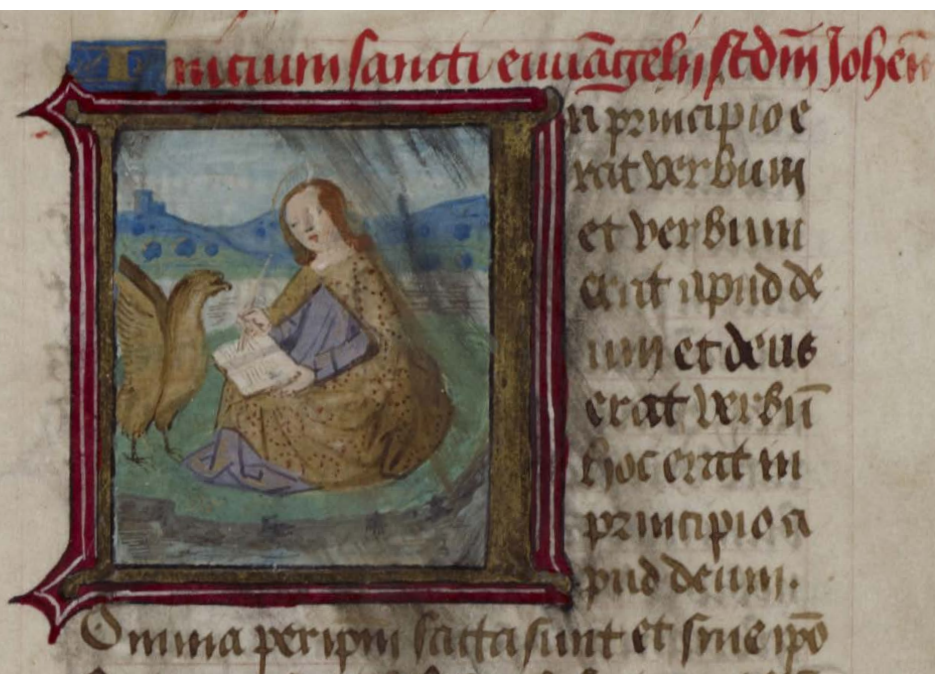 Inicium sancti euuāgelij scdm̄ Johen̄
n principio e
rat verbum
et verbum
erat apud de
um et deus
erat verbū
hoc erat in
principio a
pud deum.
Omnia per ipm̄ facta sunt et sine ipō